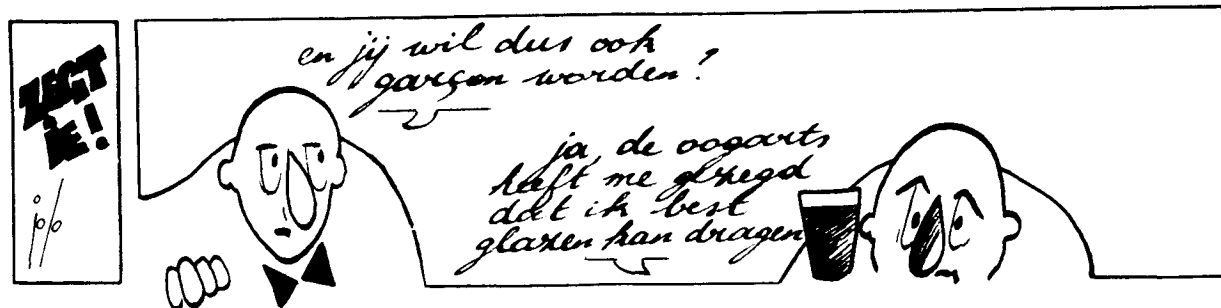 ZEGT
JE!
en jij wil dus ook
garçon worden?
ja, de oogarts
heeft me gezegd
dat ik best
glazen kan dragen